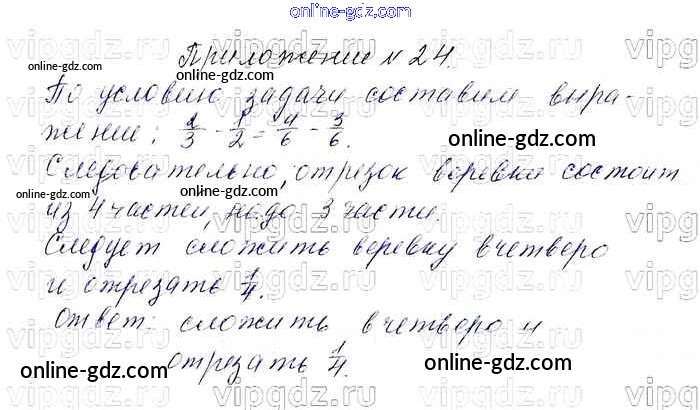 online-gdz.com
Приложение № 24.
По условию задачи составим выра-
жение: 2/3 - 1/2 = 4/6 - 3/6.
Следовательно, отрезок веревки состоит
из 4 частей, надо 3 части.
Следует сложить веревку вчетверо
и отрезать 1/4.
Ответ: сложить вчетверо и
отрезать 1/4.
online-gdz.com
online-gdz.com
online-gdz.com
online-gdz.com
online-gdz.com
online-gdz.com
online-gdz.com
online-gdz.com
vipgdz.ru